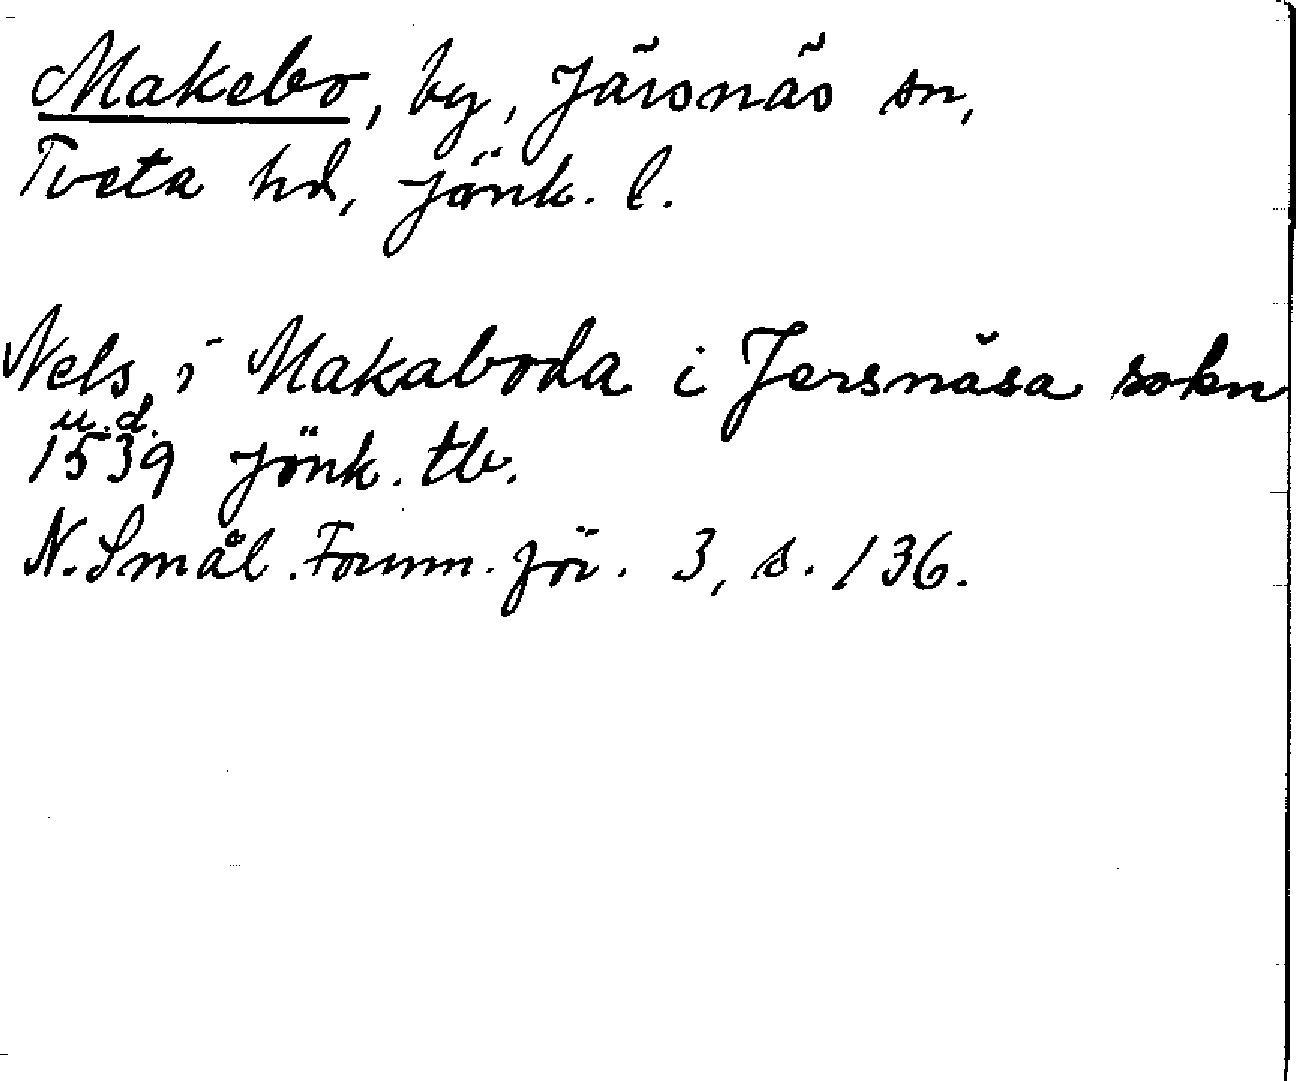 Makebo, by, Järsnäs sn,
Tveta hd, Jönk. l.
Nels i Makaboda i Jersnäsa sokn
u.d.
1539 Jönk. tb.
N. Smål. Fornm. för. 3, s. 136.